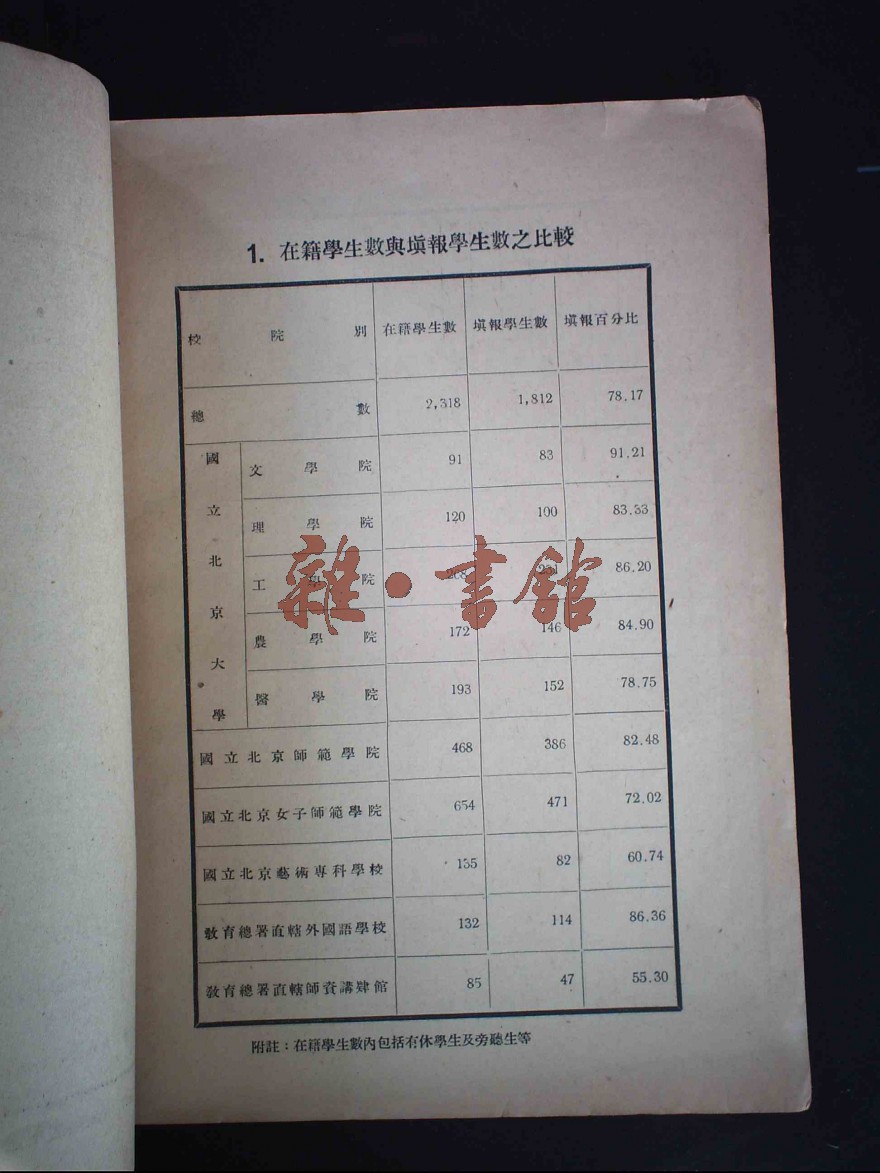 1. 在籍學生數與塡報學生數之比較
校院別 在籍學生數 塡報學生數 塡報百分比
總數 2,318 1,812 78.17
國立北京大學
文學院 91 83 91.21
理學院 120 100 83.33
工學院 268 231 86.20
農學院 172 146 84.90
醫學院 193 152 78.75
國立北京師範學院 468 386 82.48
國立北京女子師範學院 654 471 72.02
國立北京藝術專科學校 135 82 60.74
教育總署直轄外國語學校 132 114 86.36
教育總署直轄師資講肄館 85 47 55.30
附註：在籍學生數內包括有休學生及旁聽生等
雜·書館